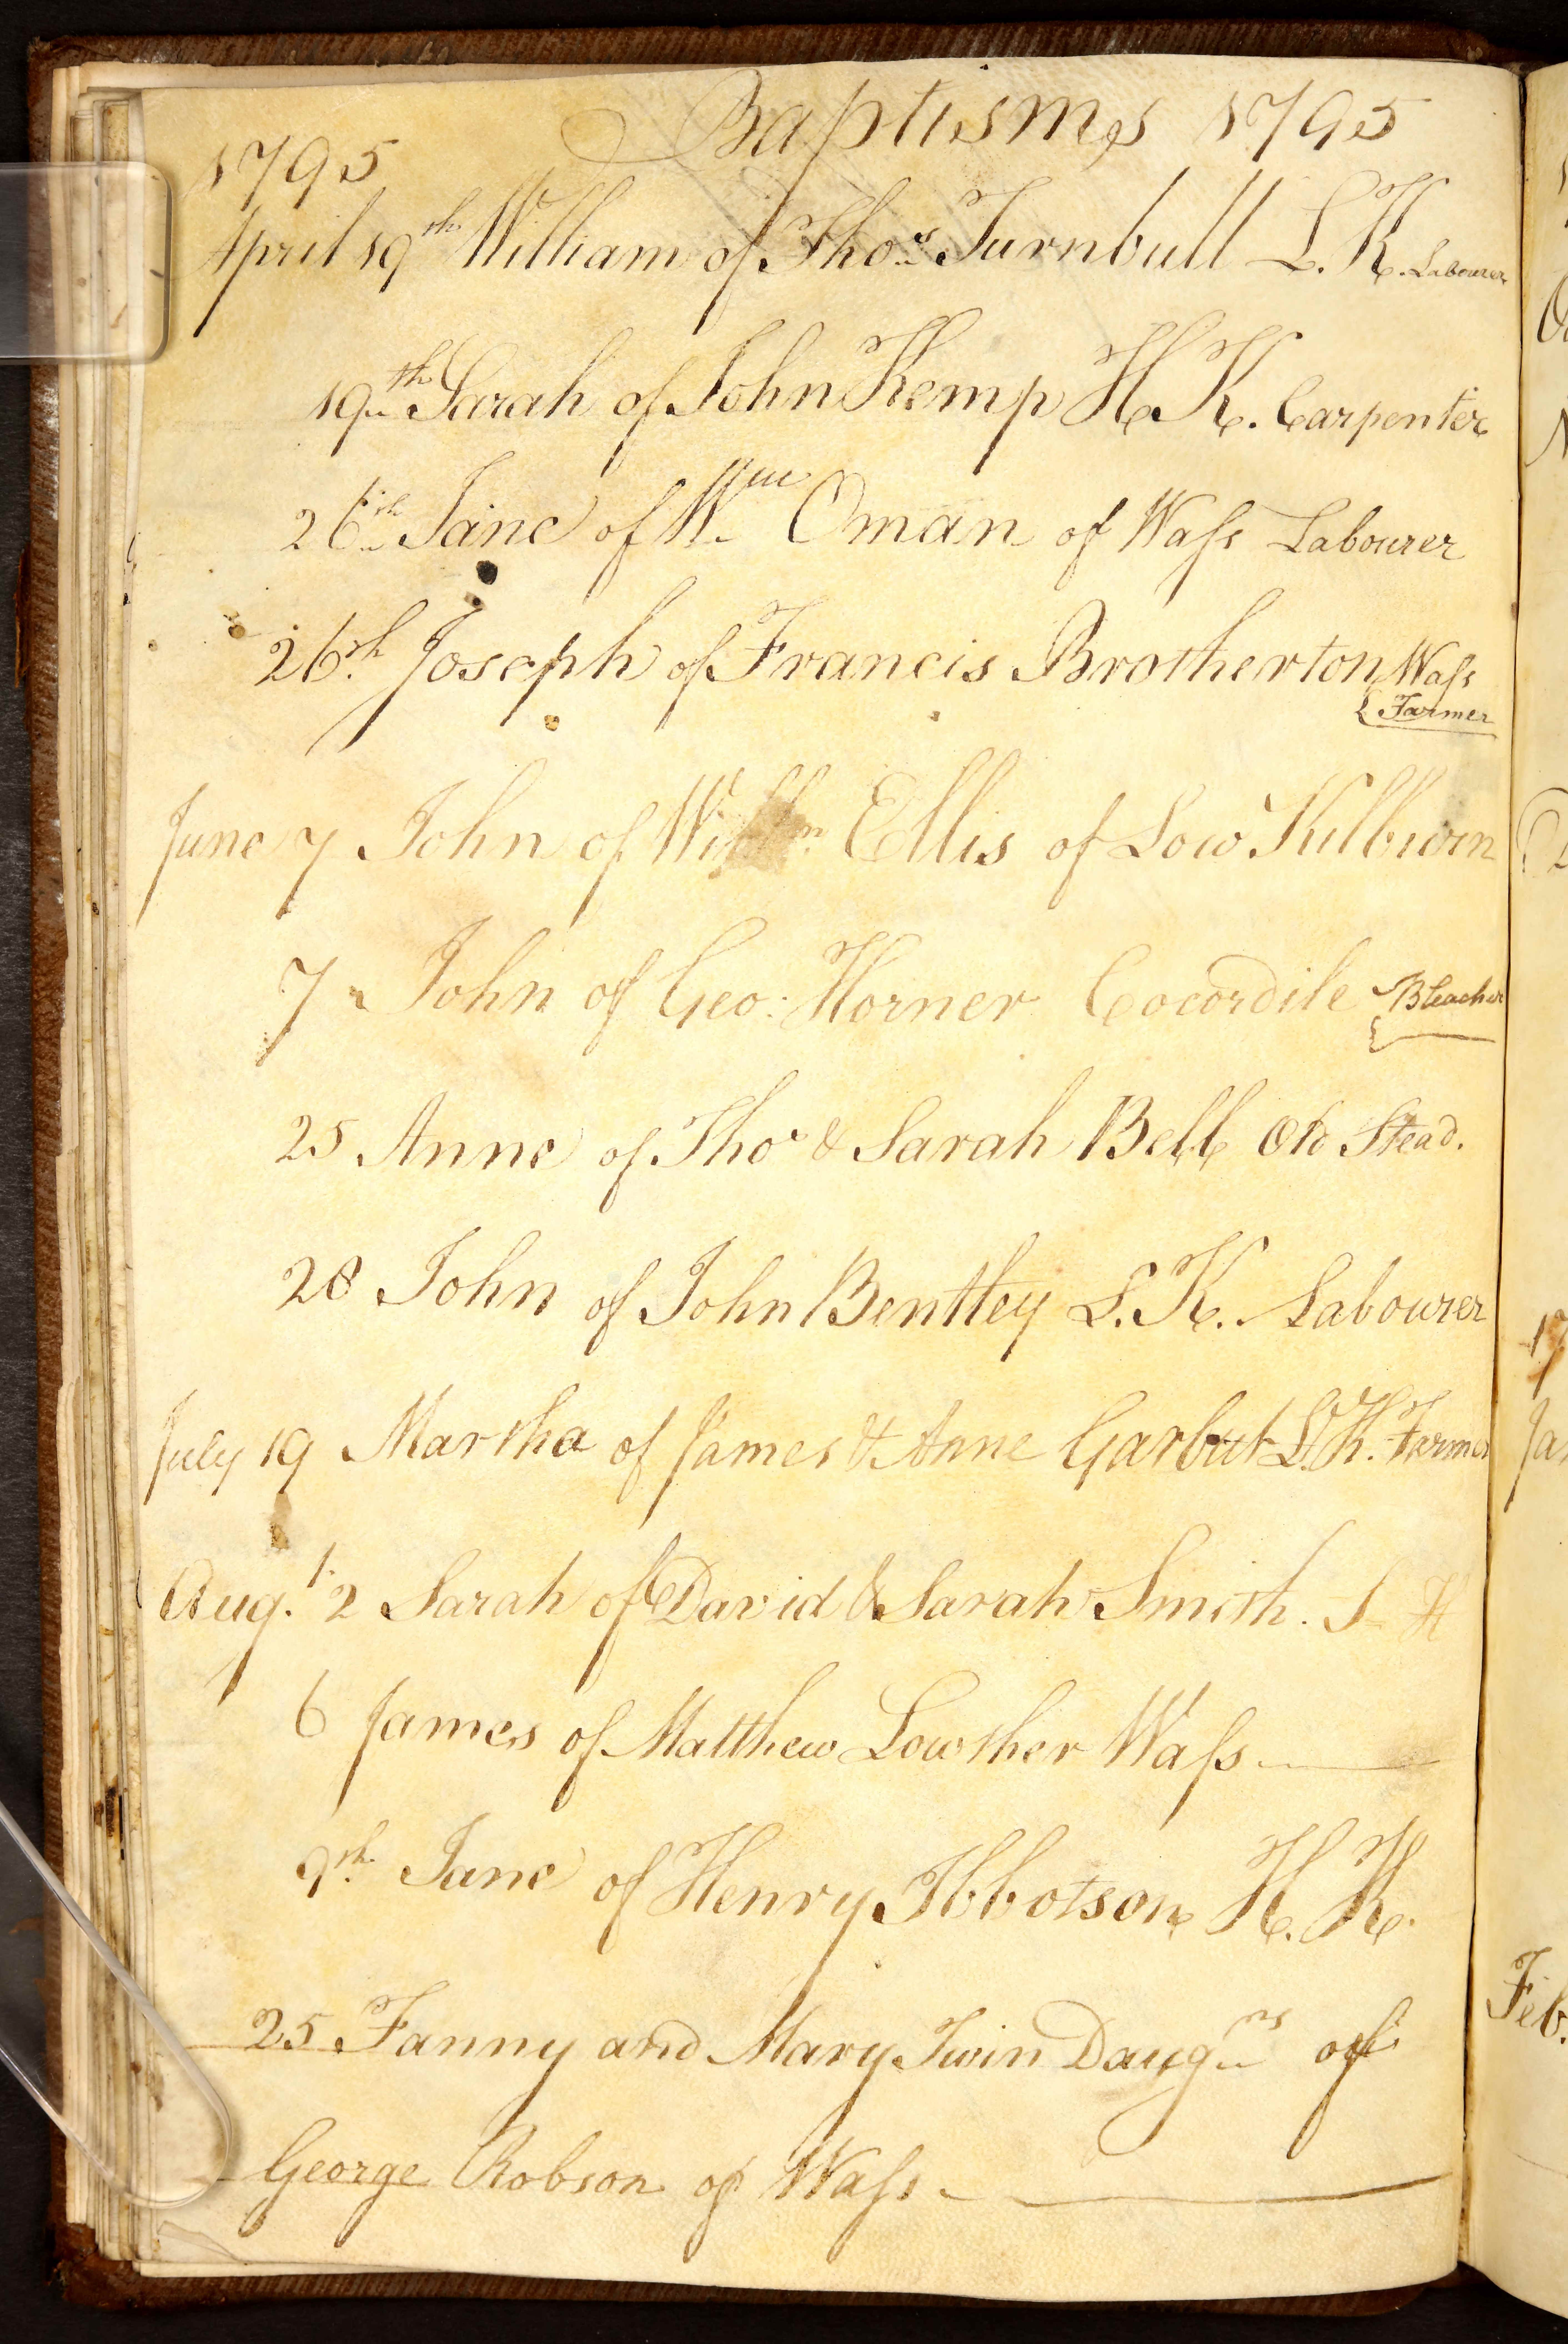 Baptisms 1795
1795
April 19th William of Thos Turnbull L. K. Labourer
19th Sarah of John Kemp H. K. Carpenter
26th Jane of Wm Oman of Waſs Labourer
26th Joseph of Francis Brotherton Waſs
Farmer
June 7 John of Willm Ellis of Low Kilburn
7 John of Geo: Horner Cocordile Bleacher
25 Anne of Thos & Sarah Bell Old Stead.
28 John of John Bentley L. K. Labourer
July 19 Martha of James & Anne Garbut L. K. Farmer
Augt. 2 Sarah of David & Sarah Smith.
6 James of Matthew Lowther Waſs
9th Jane of Henry Ibbotson H. K.
25 Fanny and Mary Twin Daugrs of
George Robson of Waſs
Feb.